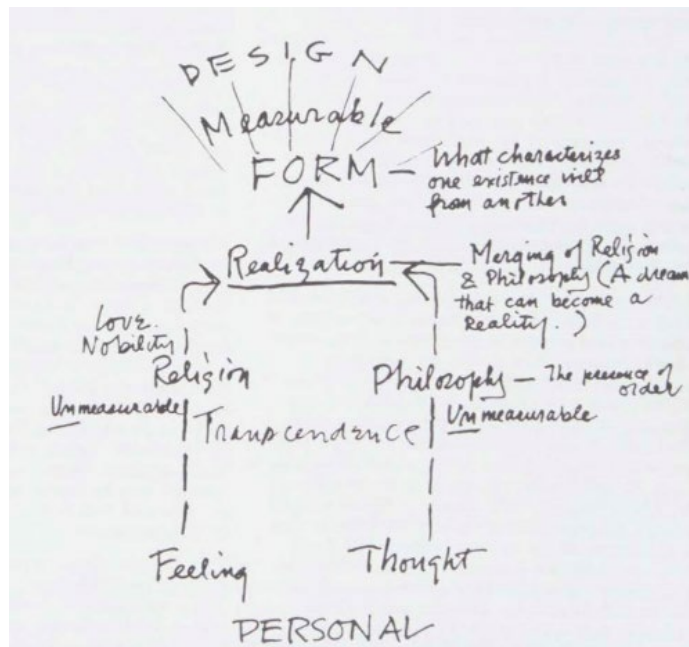 DESIGN
Measurable
FORM — What characterizes
one existence will
from another
Realization — Merging of Religion
& Philosophy (A dream
that can become a
Reality.)
Love.
Nobility)
Religion
Philosophy — The presence of
order
Unmeasurable
Transcendence
Unmeasurable
Feeling
Thought
PERSONAL